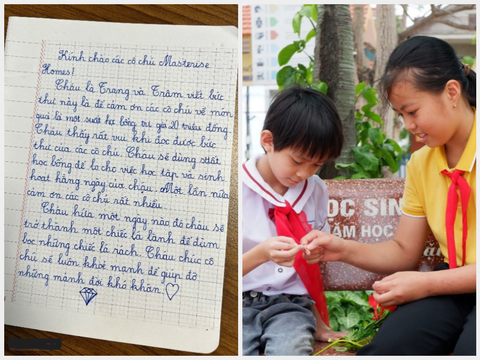 Kính chào các cô chú Masterise
Homes!
Cháu là Trang và Trâm viết bức
thư này là để cảm ơn các cô chú về món
quà là một suất học bổng trị giá 20 triệu đồng.
Cháu thấy rất vui khi đọc được bức
thư của các cô chú. Cháu sẽ dùng suất
học bổng để lo cho việc học tập và sinh
hoạt hằng ngày của cháu. Một lần nữa
cảm ơn các cô chú rất nhiều.
Cháu hứa một ngày nào đó cháu sẽ
trở thành một chiếc lá lành để đùm
bọc những chiếc lá rách. Cháu chúc cô
chú sẽ luôn khoẻ mạnh để giúp đỡ
những mảnh đời khó khăn.
ỌC SIN
NĂM HỌC